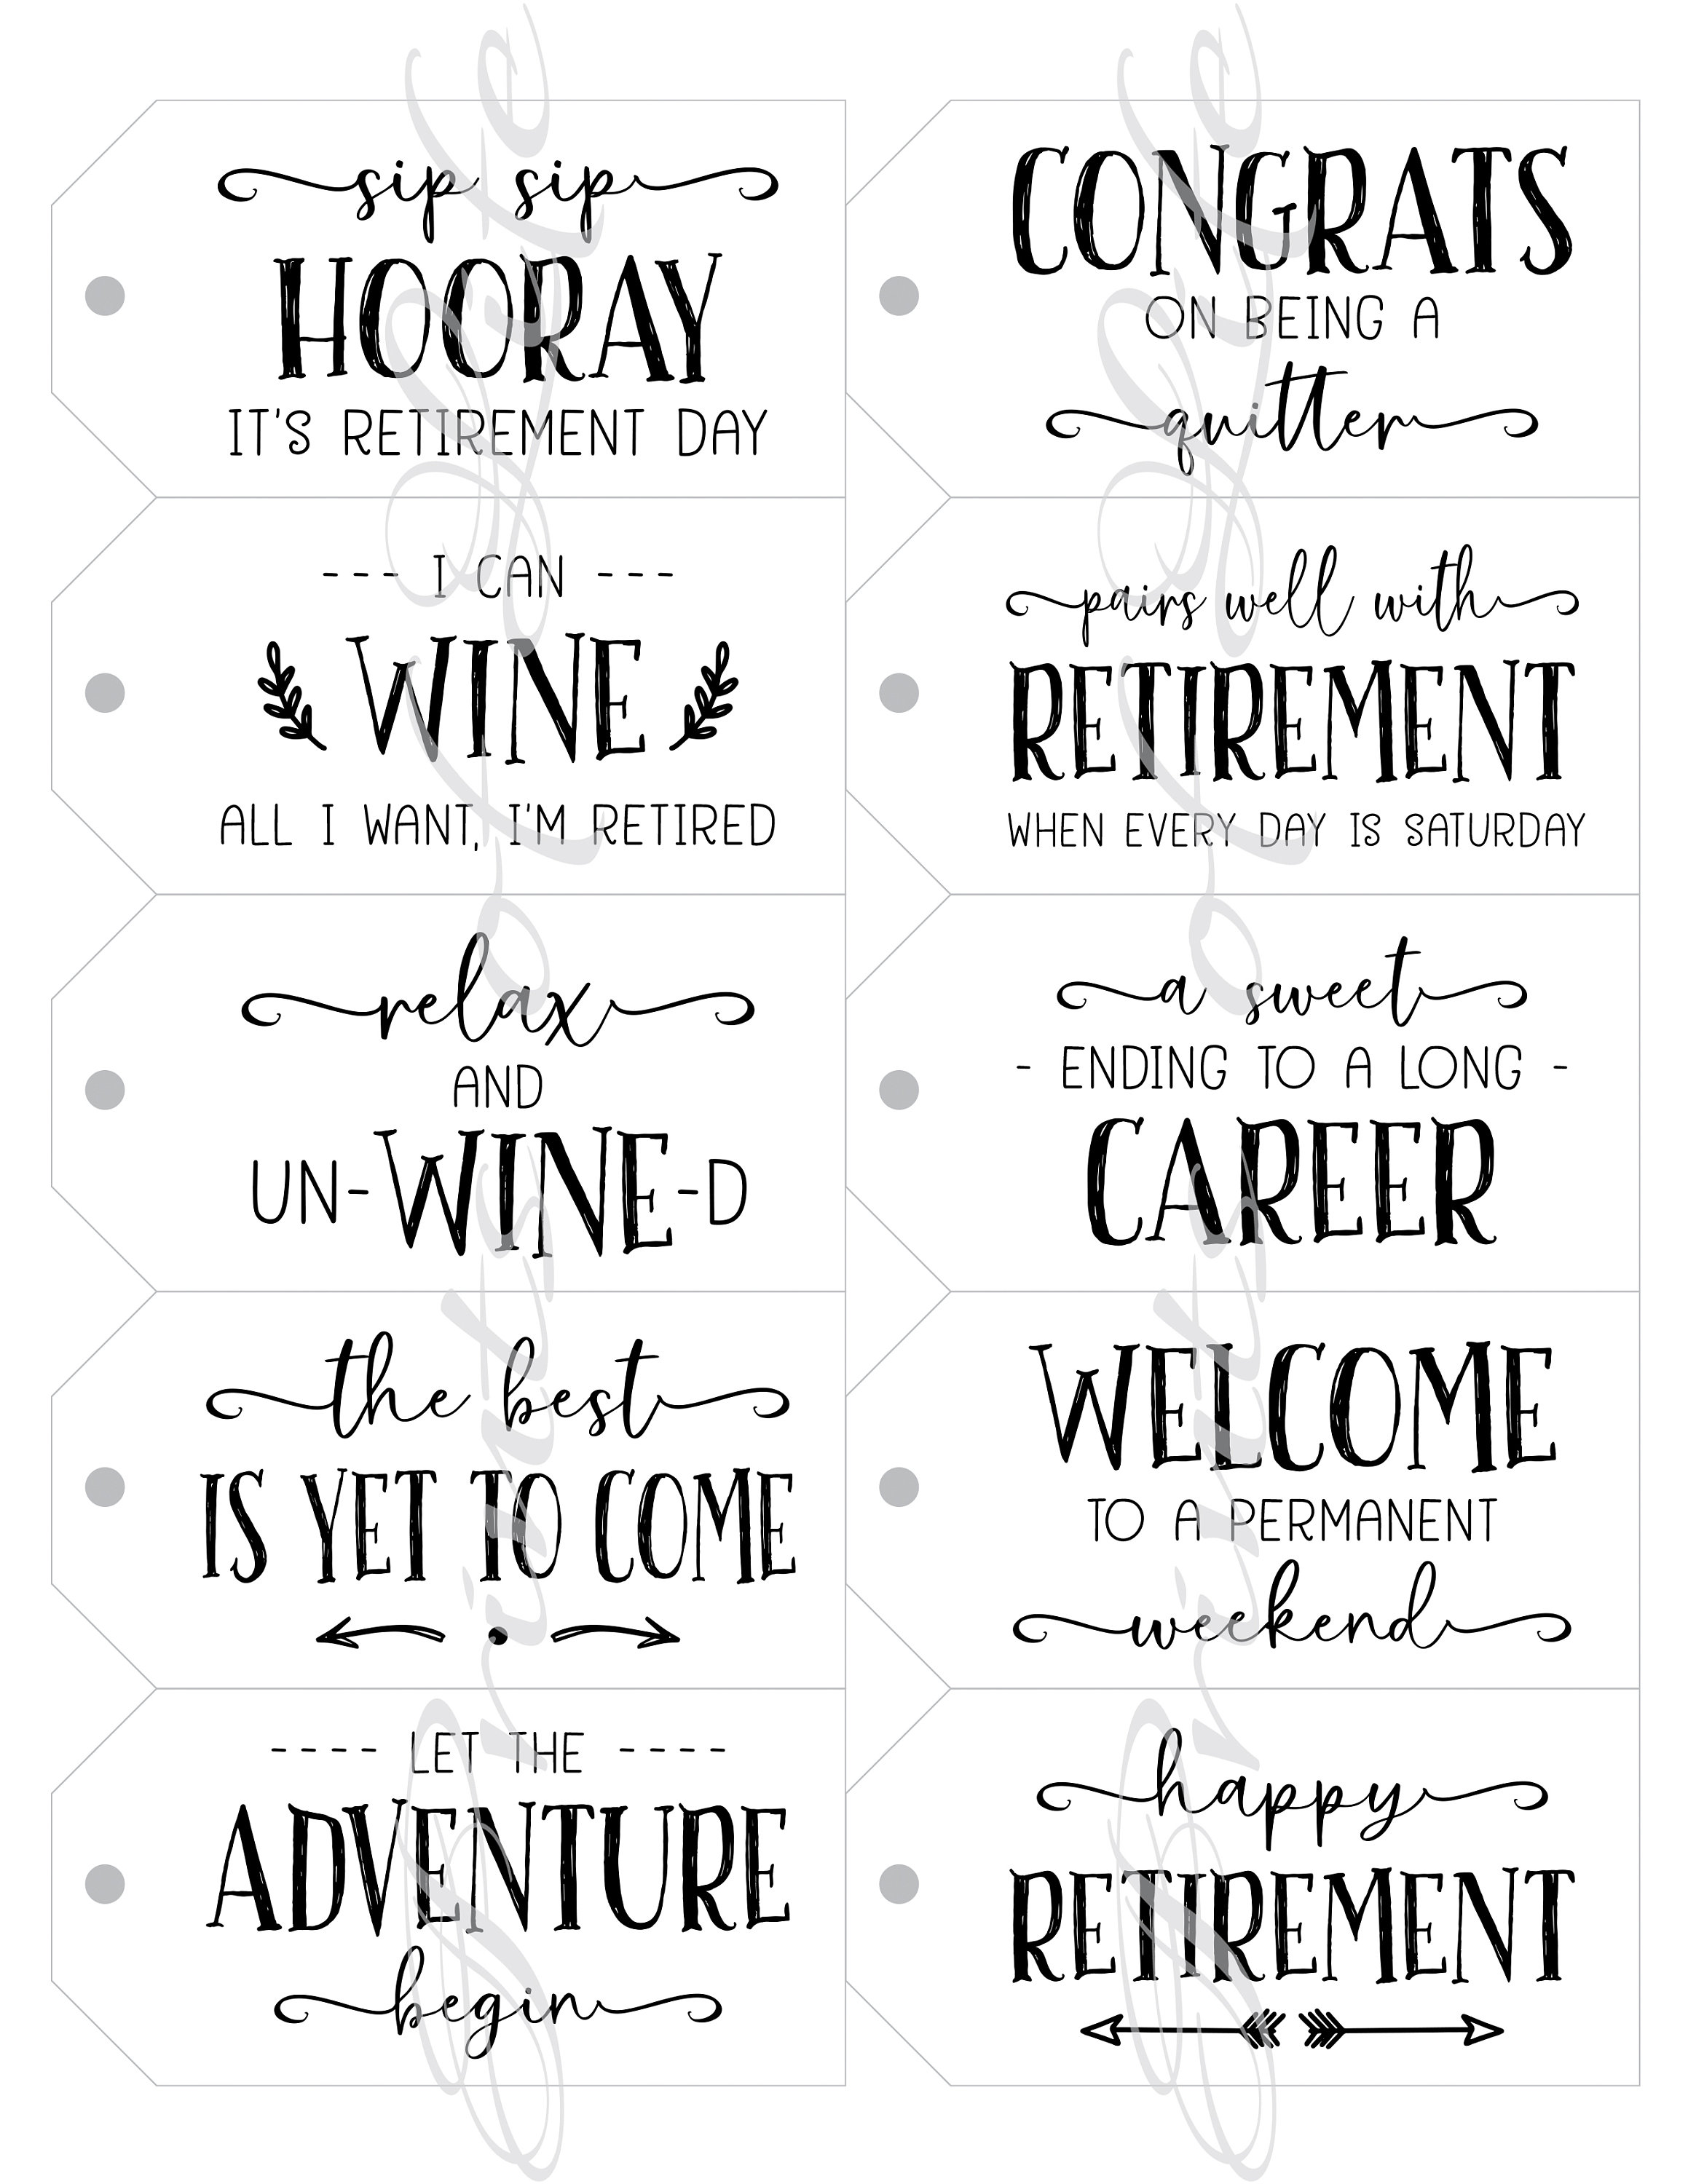 sip sip
HOORAY
IT'S RETIREMENT DAY
CONGRATS
ON BEING A
quitter
--- I CAN ---
WINE
ALL I WANT, I'M RETIRED
pairs well with
RETIREMENT
WHEN EVERY DAY IS SATURDAY
relax
AND
UN-WINE-D
a sweet
- ENDING TO A LONG -
CAREER
the best
IS YET TO COME
WELCOME
TO A PERMANENT
weekend
---- LET THE ----
ADVENTURE
begin
happy
RETIREMENT